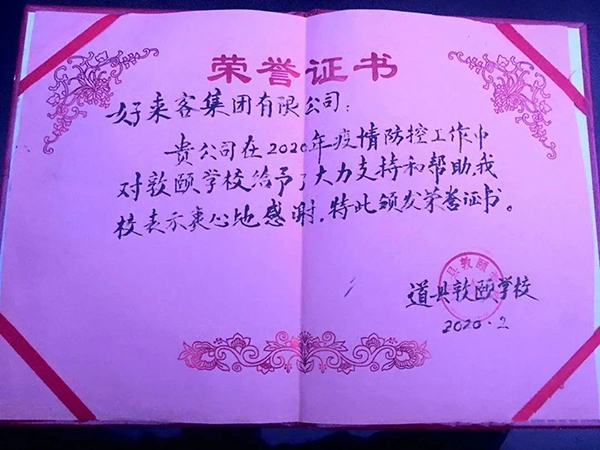 荣誉证书
好来客集团有限公司：
贵公司在2020年疫情防控工作中
对敦颐学校给予了大力支持和帮助，我
校表示衷心地感谢，特此颁发荣誉证书。
县敦颐
道县敦颐学校
2020.2